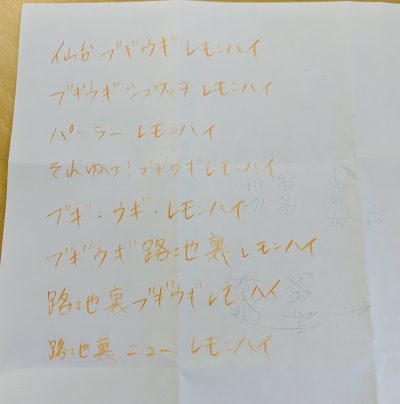 仙台ブギウギレモンハイ
ブギウギシュワッチレモンハイ
パーラーレモンハイ
それゆけ!ブギウギレモンハイ
ブギ・ウギ・レモンハイ
ブギウギ路地裏レモンハイ
路地裏ブギウギレモンハイ
路地裏ニューレモンハイ